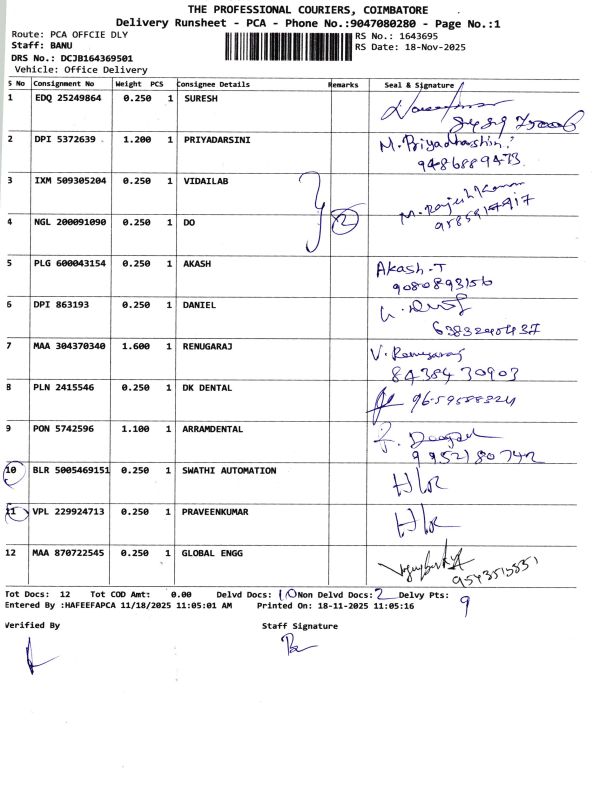 THE PROFESSIONAL COURIERS, COIMBATORE
Delivery Runsheet - PCA - Phone No.:9047080280 - Page No.:1
Route: PCA OFFCIE DLY
RS No.: 1643695
Staff: BANU
RS Date: 18-Nov-2025
DRS No.: DCJB164369501
Vehicle: Office Delivery
S No Consignment No Weight PCS Consignee Details Remarks Seal & Signature
1 EDQ 25249864 0.250 1 SURESH
2 DPI 5372639 1.200 1 PRIYADARSINI M. Priyadharshini
9486889473
3 IXM 509305204 0.250 1 VIDAILAB M. Rajesh Kumar
4 NGL 200091090 0.250 1 DO 2
5 PLG 600043154 0.250 1 AKASH Akash-T
9080893156
6 DPI 863193 0.250 1 DANIEL
6383240437
7 MAA 304370340 1.600 1 RENUGARAJ V. Renugaraj
8438430903
8 PLN 2415546 0.250 1 DK DENTAL
9 PON 5742596 1.100 1 ARRAMDENTAL
9952180742
10 BLR 5005469151 0.250 1 SWATHI AUTOMATION
11 VPL 229924713 0.250 1 PRAVEENKUMAR
12 MAA 870722545 0.250 1 GLOBAL ENGG
Tot Docs: 12 Tot COD Amt: 0.00 Delvd Docs: 10 Non Delvd Docs: 2 Delvy Pts: 9
Entered By :HAFEEFAPCA 11/18/2025 11:05:01 AM Printed On: 18-11-2025 11:05:16
Verified By Staff Signature